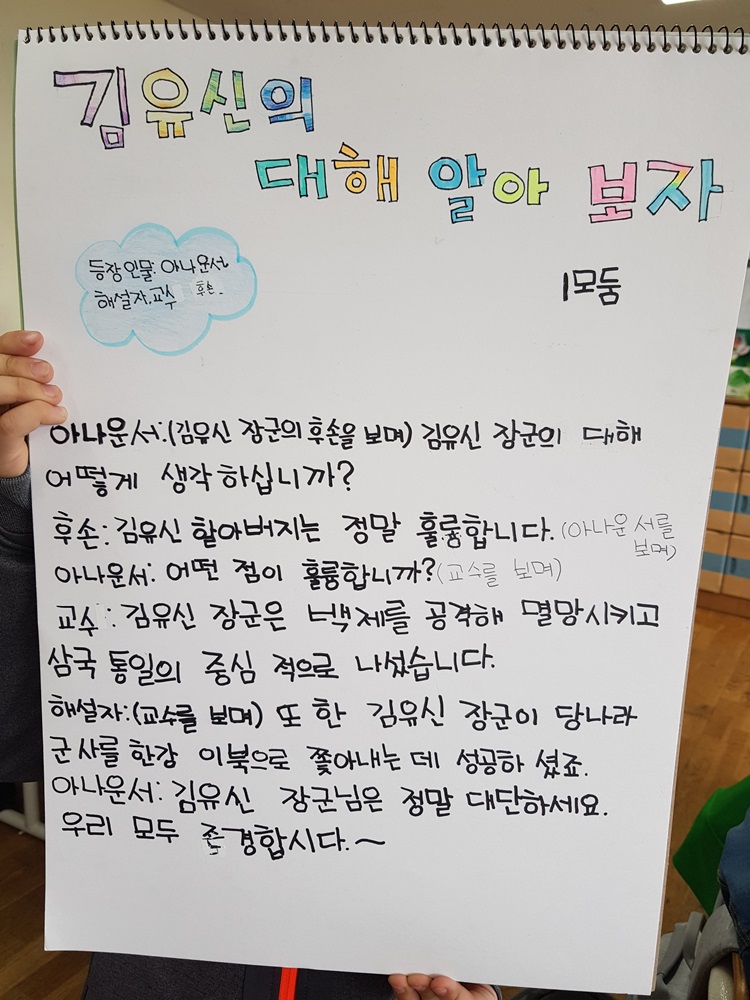 김유신의
대해 알아 보자
등장인물: 아나운서
해설자, 교수 후손.
1모둠
아나운서:(김유신 장군의 후손을 보며) 김유신 장군의 대해
어떻게 생각하십니까?
후손: 김유신 할아버지는 정말 훌륭합니다. (아나운서를
보며)
아나운서: 어떤 점이 훌륭합니까? (교수를 보며)
교수: 김유신 장군은 백제를 공격해 멸망시키고
삼국 통일의 중심 적으로 나섰습니다.
해설자:(교수를 보며) 또 한 김유신 장군이 당나라
군사를 한강 이북으로 쫓아내는 데 성공하 셨죠.
아나운서: 김유신 장군님은 정말 대단하세요.
우리 모두 존경합시다.~